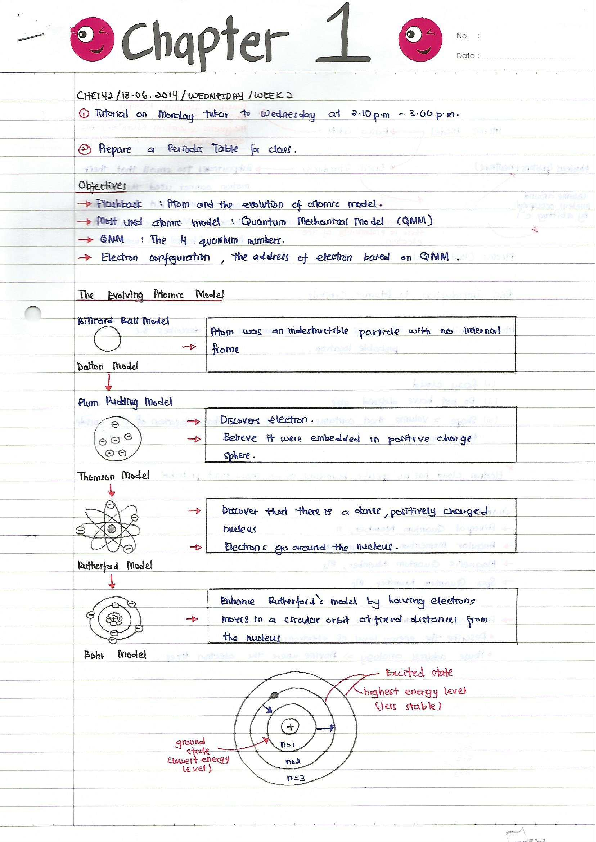 Chapter 1
No :
Date :
CHE142/18.06.2014/WEDNESDAY/WEEK 2
① Tutorial on Monday tukar to Wednesday at 2.10 pm - 3.00 p.m.
② Prepare a Periodic Table for class.
Objectives
→ Flashback : Atom and the evolution of atomic model.
→ Most used atomic model : Quantum Mechanical Model (QMM)
→ QMM : The 4 quantum numbers.
→ Electron configuration, the address of electron based on QMM.
The Evolving Atomic Model
Billiard Ball Model
→ Atom was an indestructible particle with no internal
frame
Dalton Model
Plum Pudding Model
→ Discovers electron.
→ Believe it were embedded in positive charge
sphere.
Thomson Model
→ Discover that there is a dense, positively charged
nucleus
→ Electrons go around the nucleus.
Rutherford Model
Enhance Rutherford's model by having electrons
→ moves in a circular orbit at fixed distances from
the nucleus
Bohr Model
Excited state
highest energy level
(less stable)
+
ground
state
(lowest energy
level)
n=1
n=2
n=3